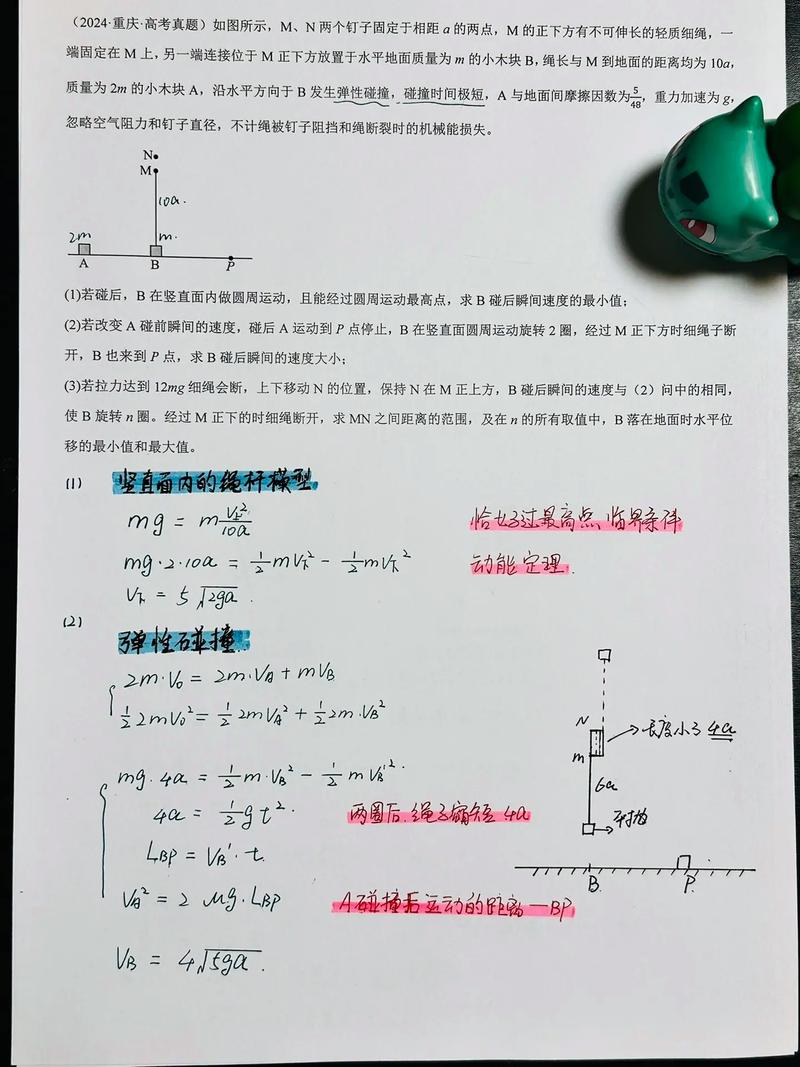 （2024·重庆·高考真题）如图所示，M、N 两个钉子固定于相距 a 的两点，M 的正下方有不可伸长的轻质细绳，一
端固定在 M 上，另一端连接位于 M 正下方放置于水平地面质量为 m 的小木块 B，绳长与 M 到地面的距离均为 10a，
质量为 2m 的小木块 A，沿水平方向于 B 发生弹性碰撞，碰撞时间极短，A 与地面间摩擦因数为5/48，重力加速为 g，
忽略空气阻力和钉子直径，不计绳被钉子阻挡和绳断裂时的机械能损失。
N
M
10a
2m
m
A
B
P
(1)若碰后，B 在竖直面内做圆周运动，且能经过圆周运动最高点，求 B 碰后瞬间速度的最小值；
(2)若改变 A 碰前瞬间的速度，碰后 A 运动到 P 点停止，B 在竖直面圆周运动旋转 2 圈，经过 M 正下方时细绳子断
开，B 也来到 P 点，求 B 碰后瞬间的速度大小；
(3)若拉力达到 12mg 细绳会断，上下移动 N 的位置，保持 N 在 M 正上方，B 碰后瞬间的速度与（2）问中的相同，
使 B 旋转 n 圈。经过 M 正下的时细绳断开，求 MN 之间距离的范围，及在 n 的所有取值中，B 落在地面时水平位
移的最小值和最大值。
(1)
竖直面内的绳杆模型
mg = m v上²/10a
恰好过最高点 临界条件
mg·2·10a = ½mV下² - ½mV下²
动能定理
V下 = 5√2ga
(2)
弹性碰撞
2m·V₀ = 2m·VA + mVB
½2mV₀² = ½2mVA² + ½2m·VB²
mg·4a = ½m·VB² - ½mVB'²
4a = ½gt²
两圈后，绳子缩短 4a
LBP = VB'·t
VA² = 2μg·LBP
A碰撞后运动的距离—BP
VB = 4√5ga
N
长度小了4a
m
6a
平抛
B
P